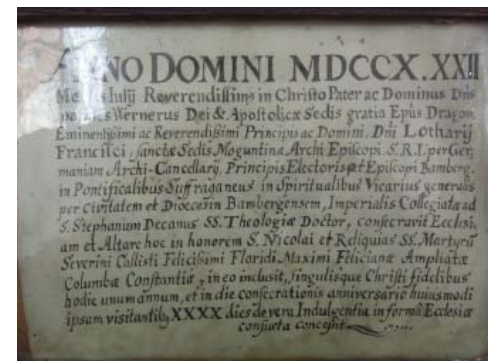 ANNO DOMINI MDCCX.XXII
Mensis Iulij Reverendissimus in Christo Pater ac Dominus Dns
Wernerus Dei & Apostolicæ Sedis gratia Epus Dragon.
Eminentissimi ac Reverendissimi Principis ac Domini, Dni Lotharij
Francisci, sanctæ Sedis Moguntinæ Archi Episcopi S.R.I. per Ger,
maniam Archi-Cancellarij, Principis Electoris et Episcopi Bamberg,
in Pontificalibus Suffraganeus in Spiritualibus Vicarius generalis
per Civitatem et Diœcesin Bambergensem, Imperialis Collegiatæ ad
S. Stephanum Decanus SS. Theologiæ Doctor, consecravit Ecclesi,
am et Altare hoc in honorem S. Nicolai et Reliquias SS. Martyrū
Severini Callisti Felicissimi Floridi Maximi Felicianæ Ampliatæ
Columbæ Constantiæ, in eo inclusit, singulisque Christi fidelibus
hodie unum annum, et in die consecrationis anniversario huiusmodi
ipsam visitantibus XXXX dies de vera Indulgentia in forma Ecclesiæ
consueta concessit